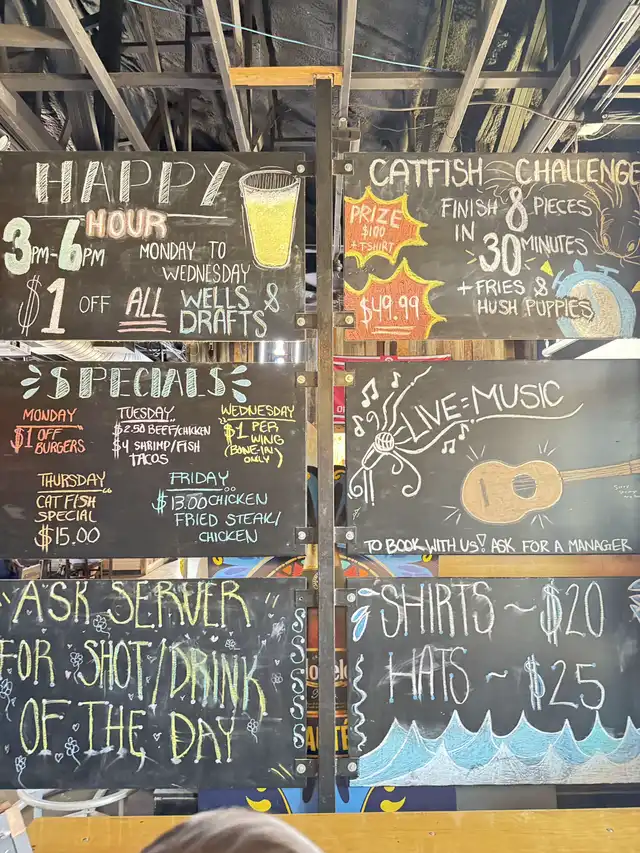 HAPPY
HOUR
3PM-6PM
MONDAY TO
WEDNESDAY
$1 OFF ALL WELLS &
DRAFTS
CATFISH CHALLENGE
PRIZE
$100
+ TSHIRT
FINISH 8 PIECES
IN 30 MINUTES
+ FRIES &
HUSH PUPPIES
$49.99
$PECIAL$
MONDAY
$1 OFF
BURGERS
TUESDAY
$2.50 BEEF/CHICKEN
$4 SHRIMP/FISH
TACOS
WEDNESDAY
$1 PER
WING
(BONE-IN
ONLY)
THURSDAY
CATFISH
SPECIAL
$15.00
FRIDAY
$13.00 CHICKEN
FRIED STEAK/
CHICKEN
LIVE MUSIC
TO BOOK WITH US! ASK FOR A MANAGER
ASK SERVER
FOR SHOT/DRINK
OF THE DAY
SHIRTS ~ $20
HATS ~ $25